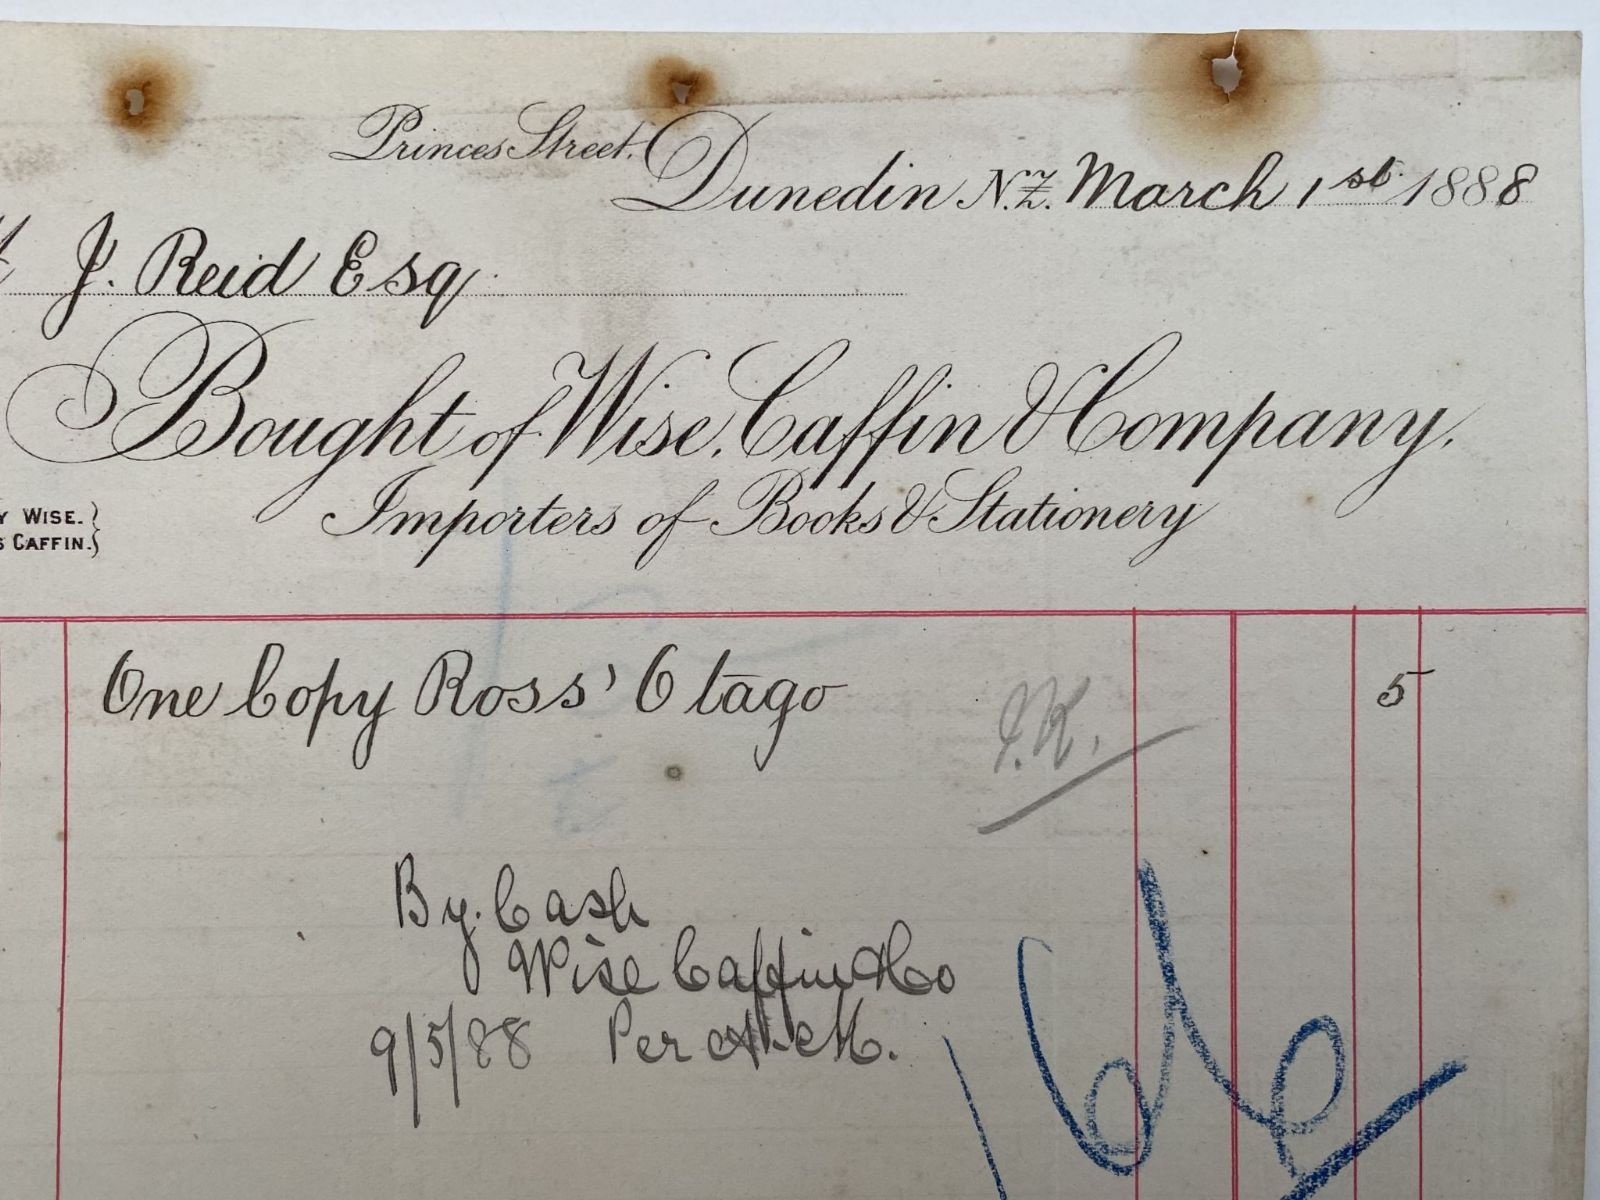 Princes Street.
Dunedin N.Z. March 1st. 1888
J. Reid Esq.
Bought of Wise, Caffin & Company,
Y WISE.
S CAFFIN.
Importers of Books & Stationery
One Copy Ross' Otago 5
By. Cash
Wise Caffin & Co
9/5/88 Per A. M.